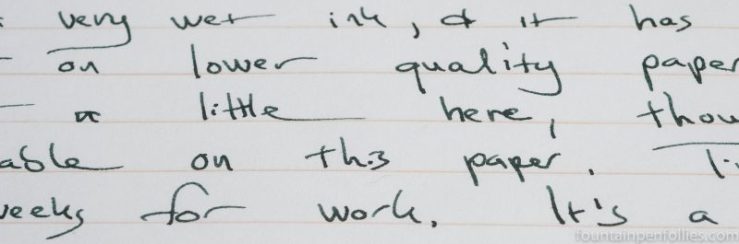 very wet ink, & it has
on lower quality paper
a little here, thou
able on this paper.
weeks for work. It's a
fountainpenfollies.com